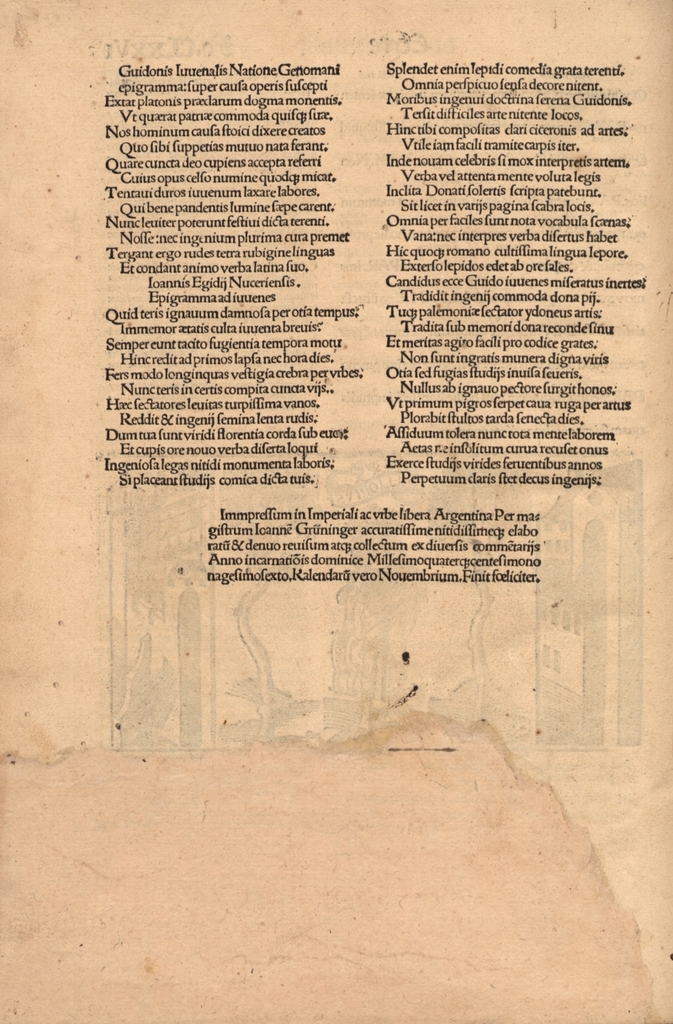 Guidonis Iuuenalis Natione Genomani
epigramma: super causa operis suscepti
Extat platonis præclarum dogma monentis.
Vt quærat patriæ commoda quisqꝫ suæ.
Nos hominum causa stoici dixere creatos
Quo sibi suppetias mutuo nata ferant.
Quare cuncta deo cupiens accepta referri
Cuius opus celso numine quodqꝫ micat.
Tentaui duros iuuenum laxare labores.
Qui bene pandentis lumine sæpe carent.
Nunc leuiter poterunt festiui dicta terenti.
Nosse: nec ingenium plurima cura premet
Tergant ergo rudes tetra rubigine linguas
Et condant animo verba latina suo.
Ioannis Egidij Nuceriensis.
Epigramma ad iuuenes
Quid teris ignauum damnosa per otia tempus:
Immemor ætatis culta iuuenta breuis:
Semper eunt tacito fugientia tempora motu
Hinc redit ad primos lapsa nec hora dies.
Fers modo longinquas vestigia crebra per vrbes.
Nunc teris in certis compita cuncta vijs.
Hæc sectatores leuitas turpissima vanos.
Reddit & ingenij semina lenta rudis:
Dum tua sunt viridi florentia corda sub euo:
Et cupis ore nouo verba diserta loqui
Ingeniosa legas nitidi monumenta laboris:
Si placeant studijs comica dicta tuis.
Splendet enim lepidi comedia grata terenti.
Omnia perspicuo sensa decore nitent.
Moribus ingenui doctrina serena Guidonis.
Tersit difficiles arte nitente locos.
Hinc tibi compositas clari ciceronis ad artes:
Vtile iam facili tramite carpis iter.
Inde nouam celebris si mox interpretis artem.
Verba vel attenta mente voluta legis
Inclita Donati solertis scripta patebunt.
Sit licet in varijs pagina scabra locis.
Omnia per faciles sunt nota vocabula scænas:
Vana: nec interpres verba disertus habet
Hic quoqꝫ romano cultissima lingua lepore.
Exterso lepidos edet ab ore sales.
Candidus ecce Guido iuuenes miseratus inertes:
Tradidit ingenij commoda dona pij.
Tuqꝫ palemoniæ sectator ydoneus artis:
Tradita sub memori dona reconde sinu
Et meritas agito facili pro codice grates.
Non sunt ingratis munera digna viris
Otia sed fugias studijs inuisa seueris.
Nullus ab ignauo pectore surgit honos:
Vt primum pigros serpet caua ruga per artus
Plorabit stultos tarda senecta dies.
Assiduum tolera nunc tota mente laborem
Aetas ne insolitum curua recuset onus
Exerce studijs virides feruentibus annos
Perpetuum claris stet decus ingenijs:
Immpressum in Imperiali ac vrbe libera Argentina Per ma-
gistrum Ioannē Grüninger accuratissime nitidissimeqꝫ elabo
ratū & denuo reuisum atqꝫ collectum ex diuersis commētarijs
Anno incarnatiōis dominice Millesimoquaterqꝫcentesimono
nagesimosexto. Kalendarū vero Nouembrium. Finit fœliciter.